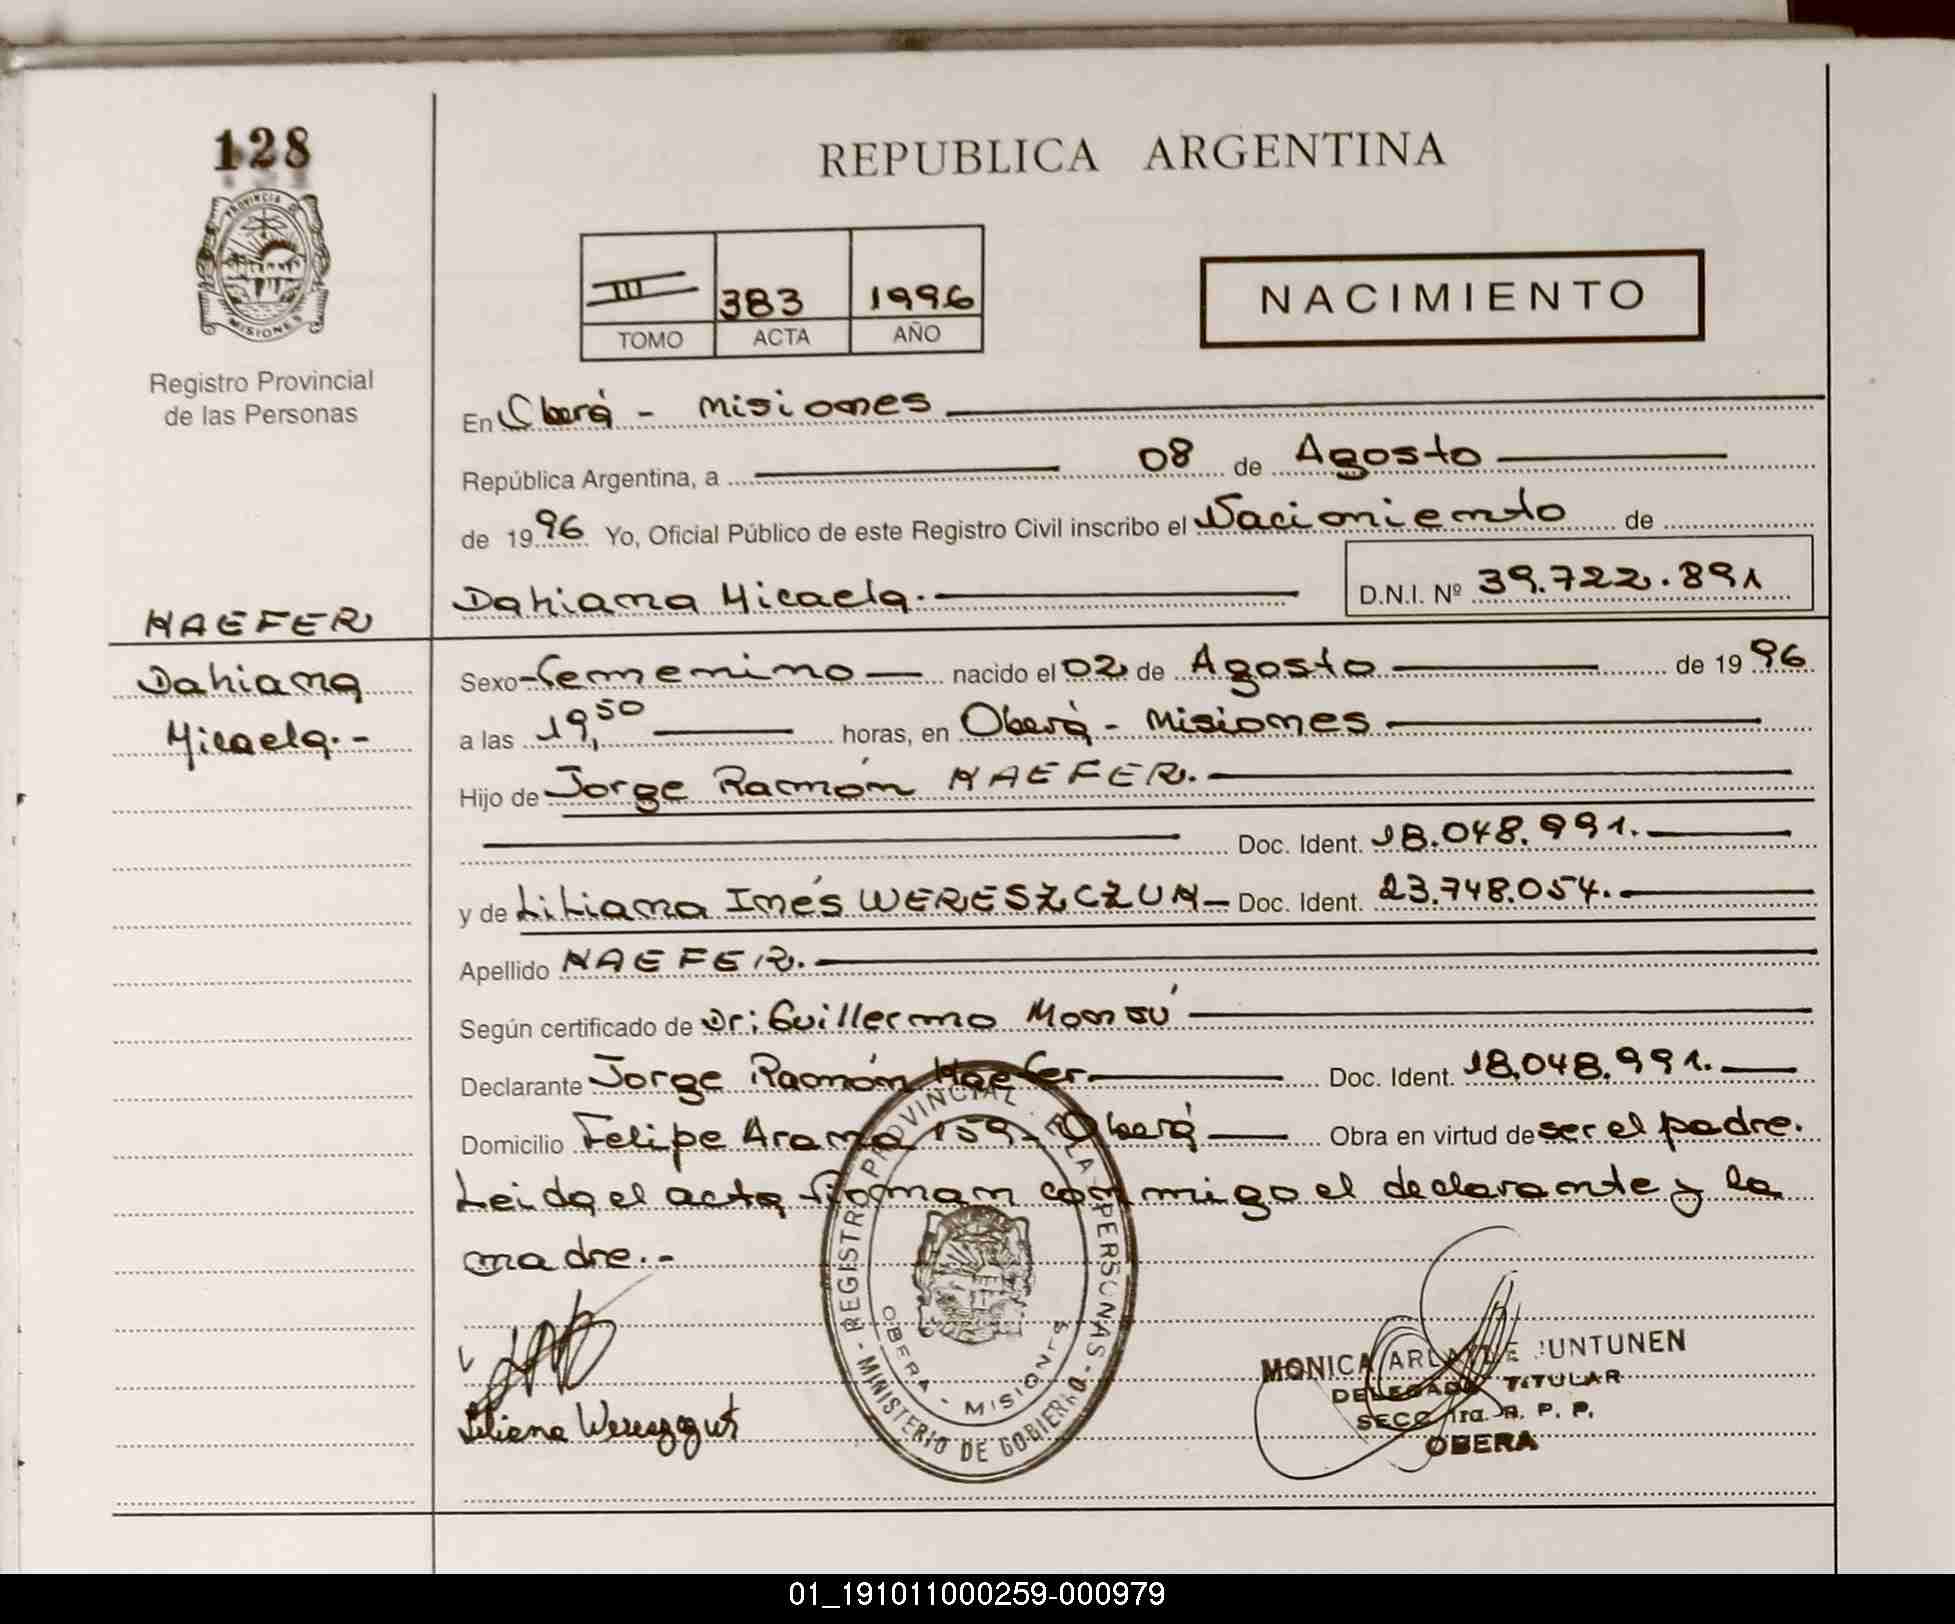 128
PROVINCIA DE
MISIONES
Registro Provincial
de las Personas
HAEFER
Dahiana
Micaela.-
REPUBLICA ARGENTINA
III 383 1996
TOMO ACTA AÑO
NACIMIENTO
En Oberá - Misiones
República Argentina, a 08 de Agosto
de 1996 Yo, Oficial Público de este Registro Civil inscribo el Nacimiento de
Dahiana Micaela. D.N.I. Nº 39.722.891
Sexo Femenino nacido el 02 de Agosto de 1996
a las 19,50 horas, en Oberá - Misiones
Hijo de Jorge Ramón HAEFER.
Doc. Ident. 18.048.991.
y de Liliana Inés WERESZCZUN Doc. Ident. 23.748.054.
Apellido HAEFER.
Según certificado de Dr: Guillermo Monsú
Declarante Jorge Ramón Haefer Doc. Ident. 18.048.991.
Domicilio Felipe Arana 159 - Oberá Obra en virtud de ser el padre.
Leida el acta firman conmigo el declarante y la
madre.-
REGISTRO PROVINCIAL DE LAS PERSONAS
OBERA - MISIONES
MINISTERIO DE GOBIERNO
Liliana
MONICA ARLETTE JUNTUNEN
DELEGADO TITULAR
SECC. 1ra. R. P. P.
OBERA
01_191011000259-000979